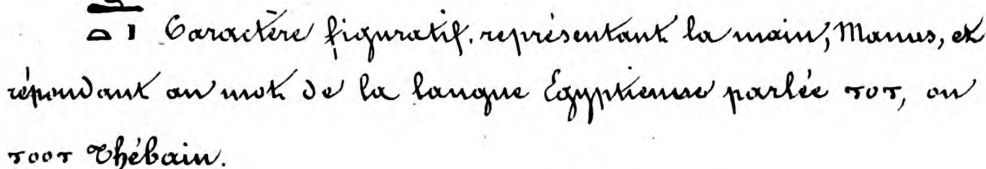 𓂧𓏏𓏤 Caractère figuratif, représentant la main, Manus, et
répondant au mot de la langue Égyptienne parlée ⲧⲟⲧ, ou
ⲧⲟⲟⲧ Thébain.